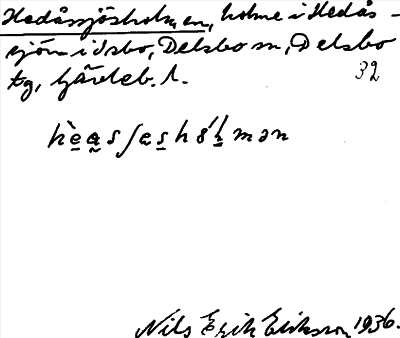 Hedåssjösholmen, holme i Hedås-
sjön i Isbo, Delsbo sn, Delsbo
tg, Gävleb. l.
32
Nils Erik Eliksson 1936.